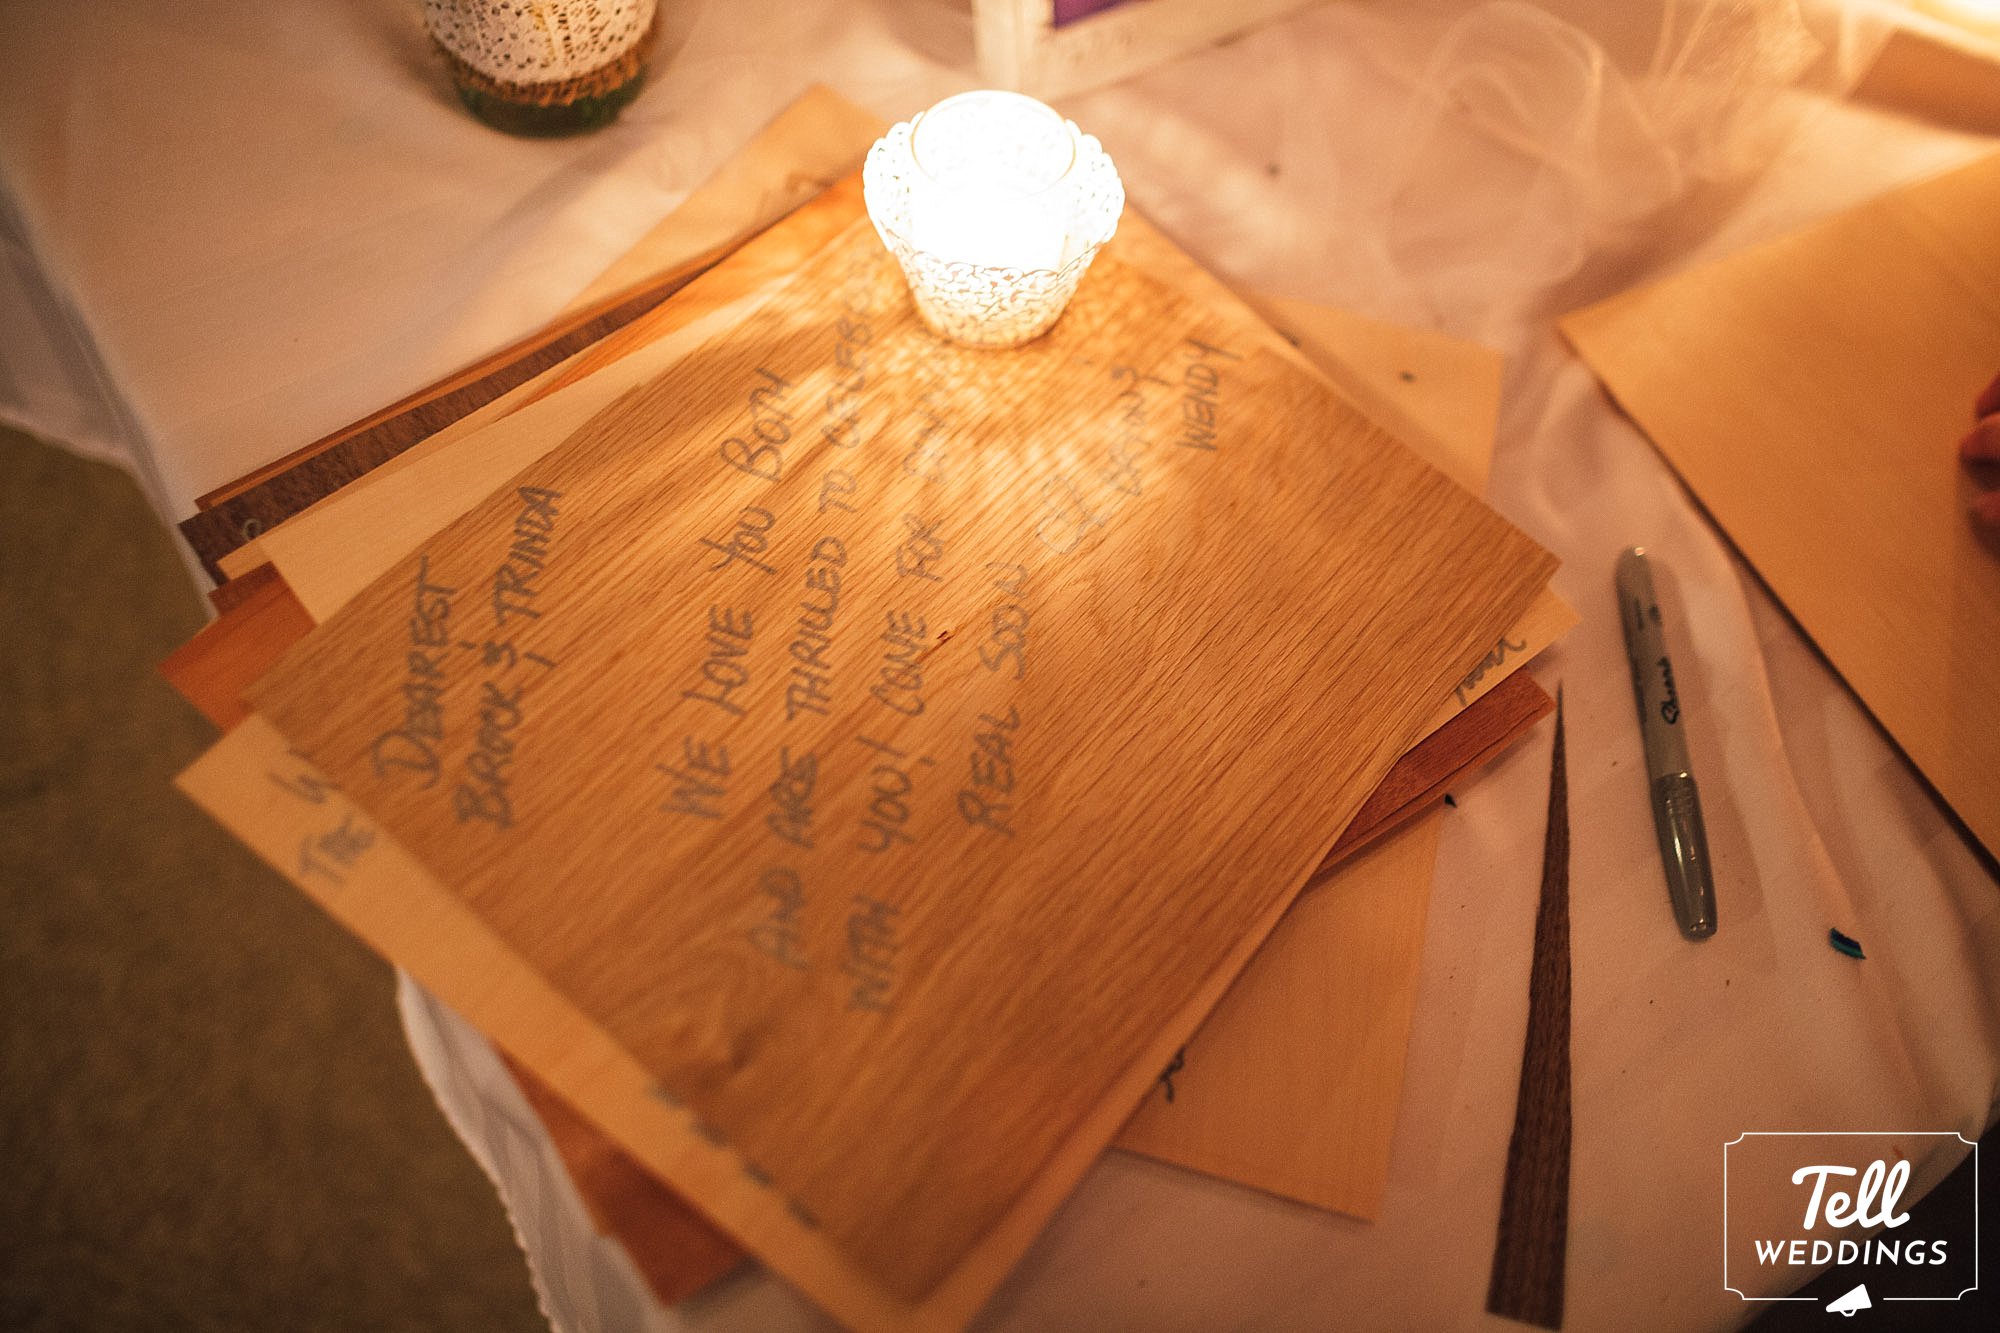 DEAREST
BROCK & TRINDA
WE LOVE YOU BOTH
AND ARE THRILLED TO
WITH YOU! COME FOR
REAL SOON
WENDY
THE
Sharpie
Tell
WEDDINGS